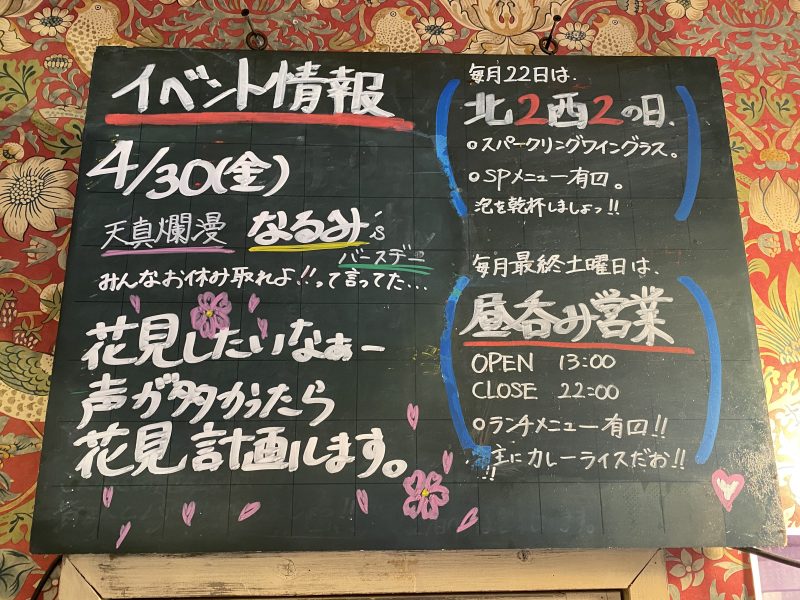 イベント情報
4/30(金)
天真爛漫 なるみ's
バースデー
みんなお休み取れよ!!って言ってた…
花見したいなぁー
声が多かったら
花見計画します。
毎月22日は、
北2西2の日、
○スパークリングワイングラス。
○SPメニュー有り。
泡を乾杯しましょっ!!
毎月最終土曜日は、
昼呑み営業
OPEN 13:00
CLOSE 22:00
○ランチメニュー有り!!
主にカレーライスだお!!